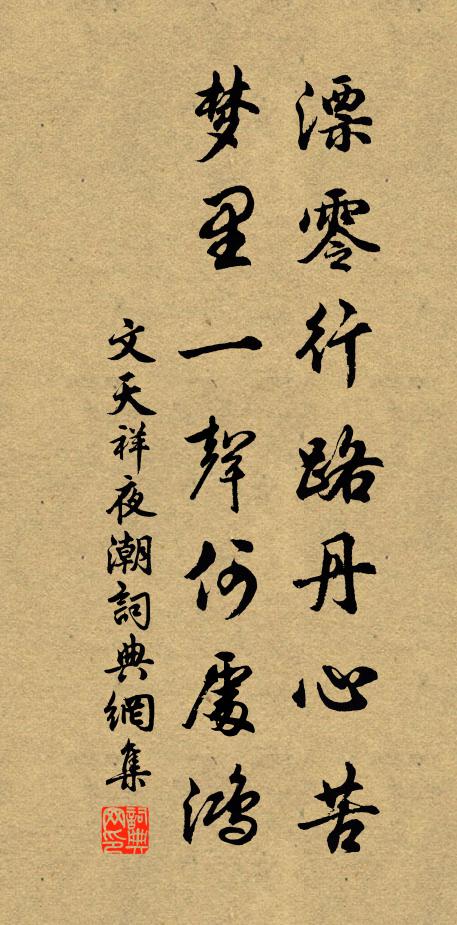 漂零行路丹心苦
梦里一聲何處鴻
文天祥夜潮詞典網集
詞典网印